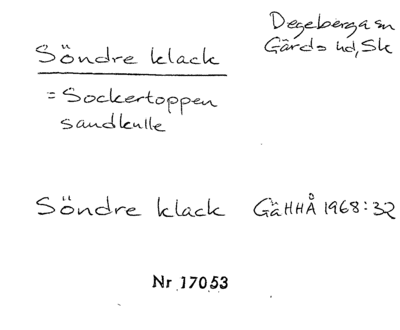 Degeberga sn
Gärds hd, Sk
Söndre klack
= Sockertoppen
sandkulle
Söndre klack GäHHÅ 1968:32
Nr 17053